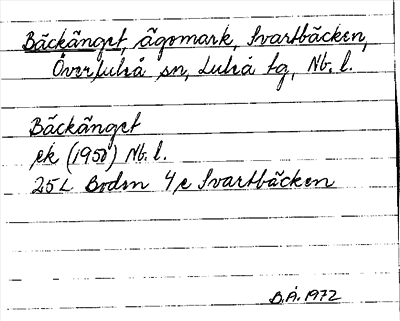 Bäckänget, ägomark, Svartbäcken,
Överluleå sn, Luleå tg, Nb. l.
Bäckänget
ek (1950) Nb. l.
25L Boden 4e Svartbäcken
B.Å. 1972